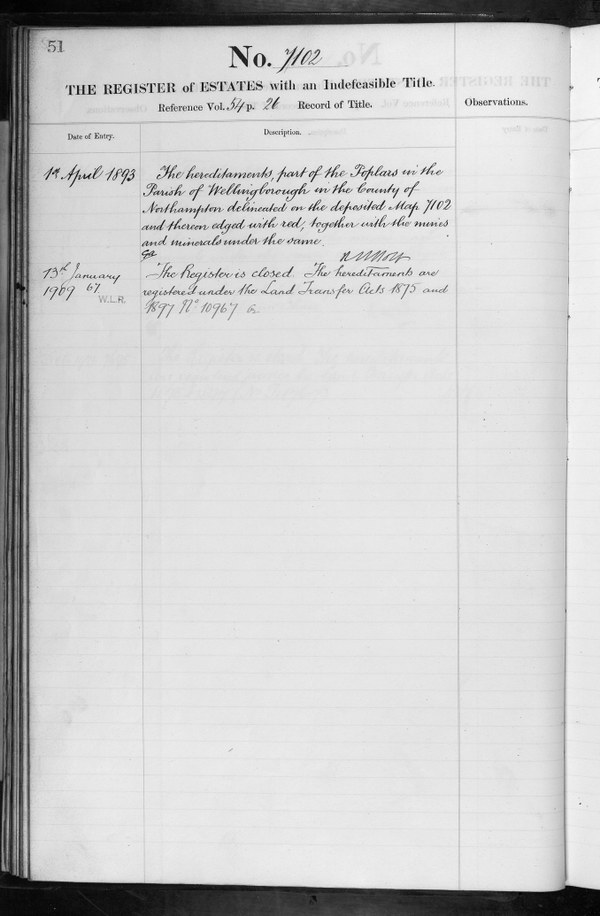 51
No. 7102
THE REGISTER of ESTATES with an Indefeasible Title.
Reference Vol. 54 p. 26 Record of Title.
Observations.
Date of Entry.
Description.
1st April 1893
The hereditaments, part of the Poplars in the
Parish of Wellingborough in the County of
Northampton delineated on the deposited Map 7102
and thereon edged with red, together with the mines
and minerals under the same.
13th January
1909 67
W.L.R.
The Register is closed The hereditaments are
registered under the Land Transfer Acts 1875 and
1897 No 10967